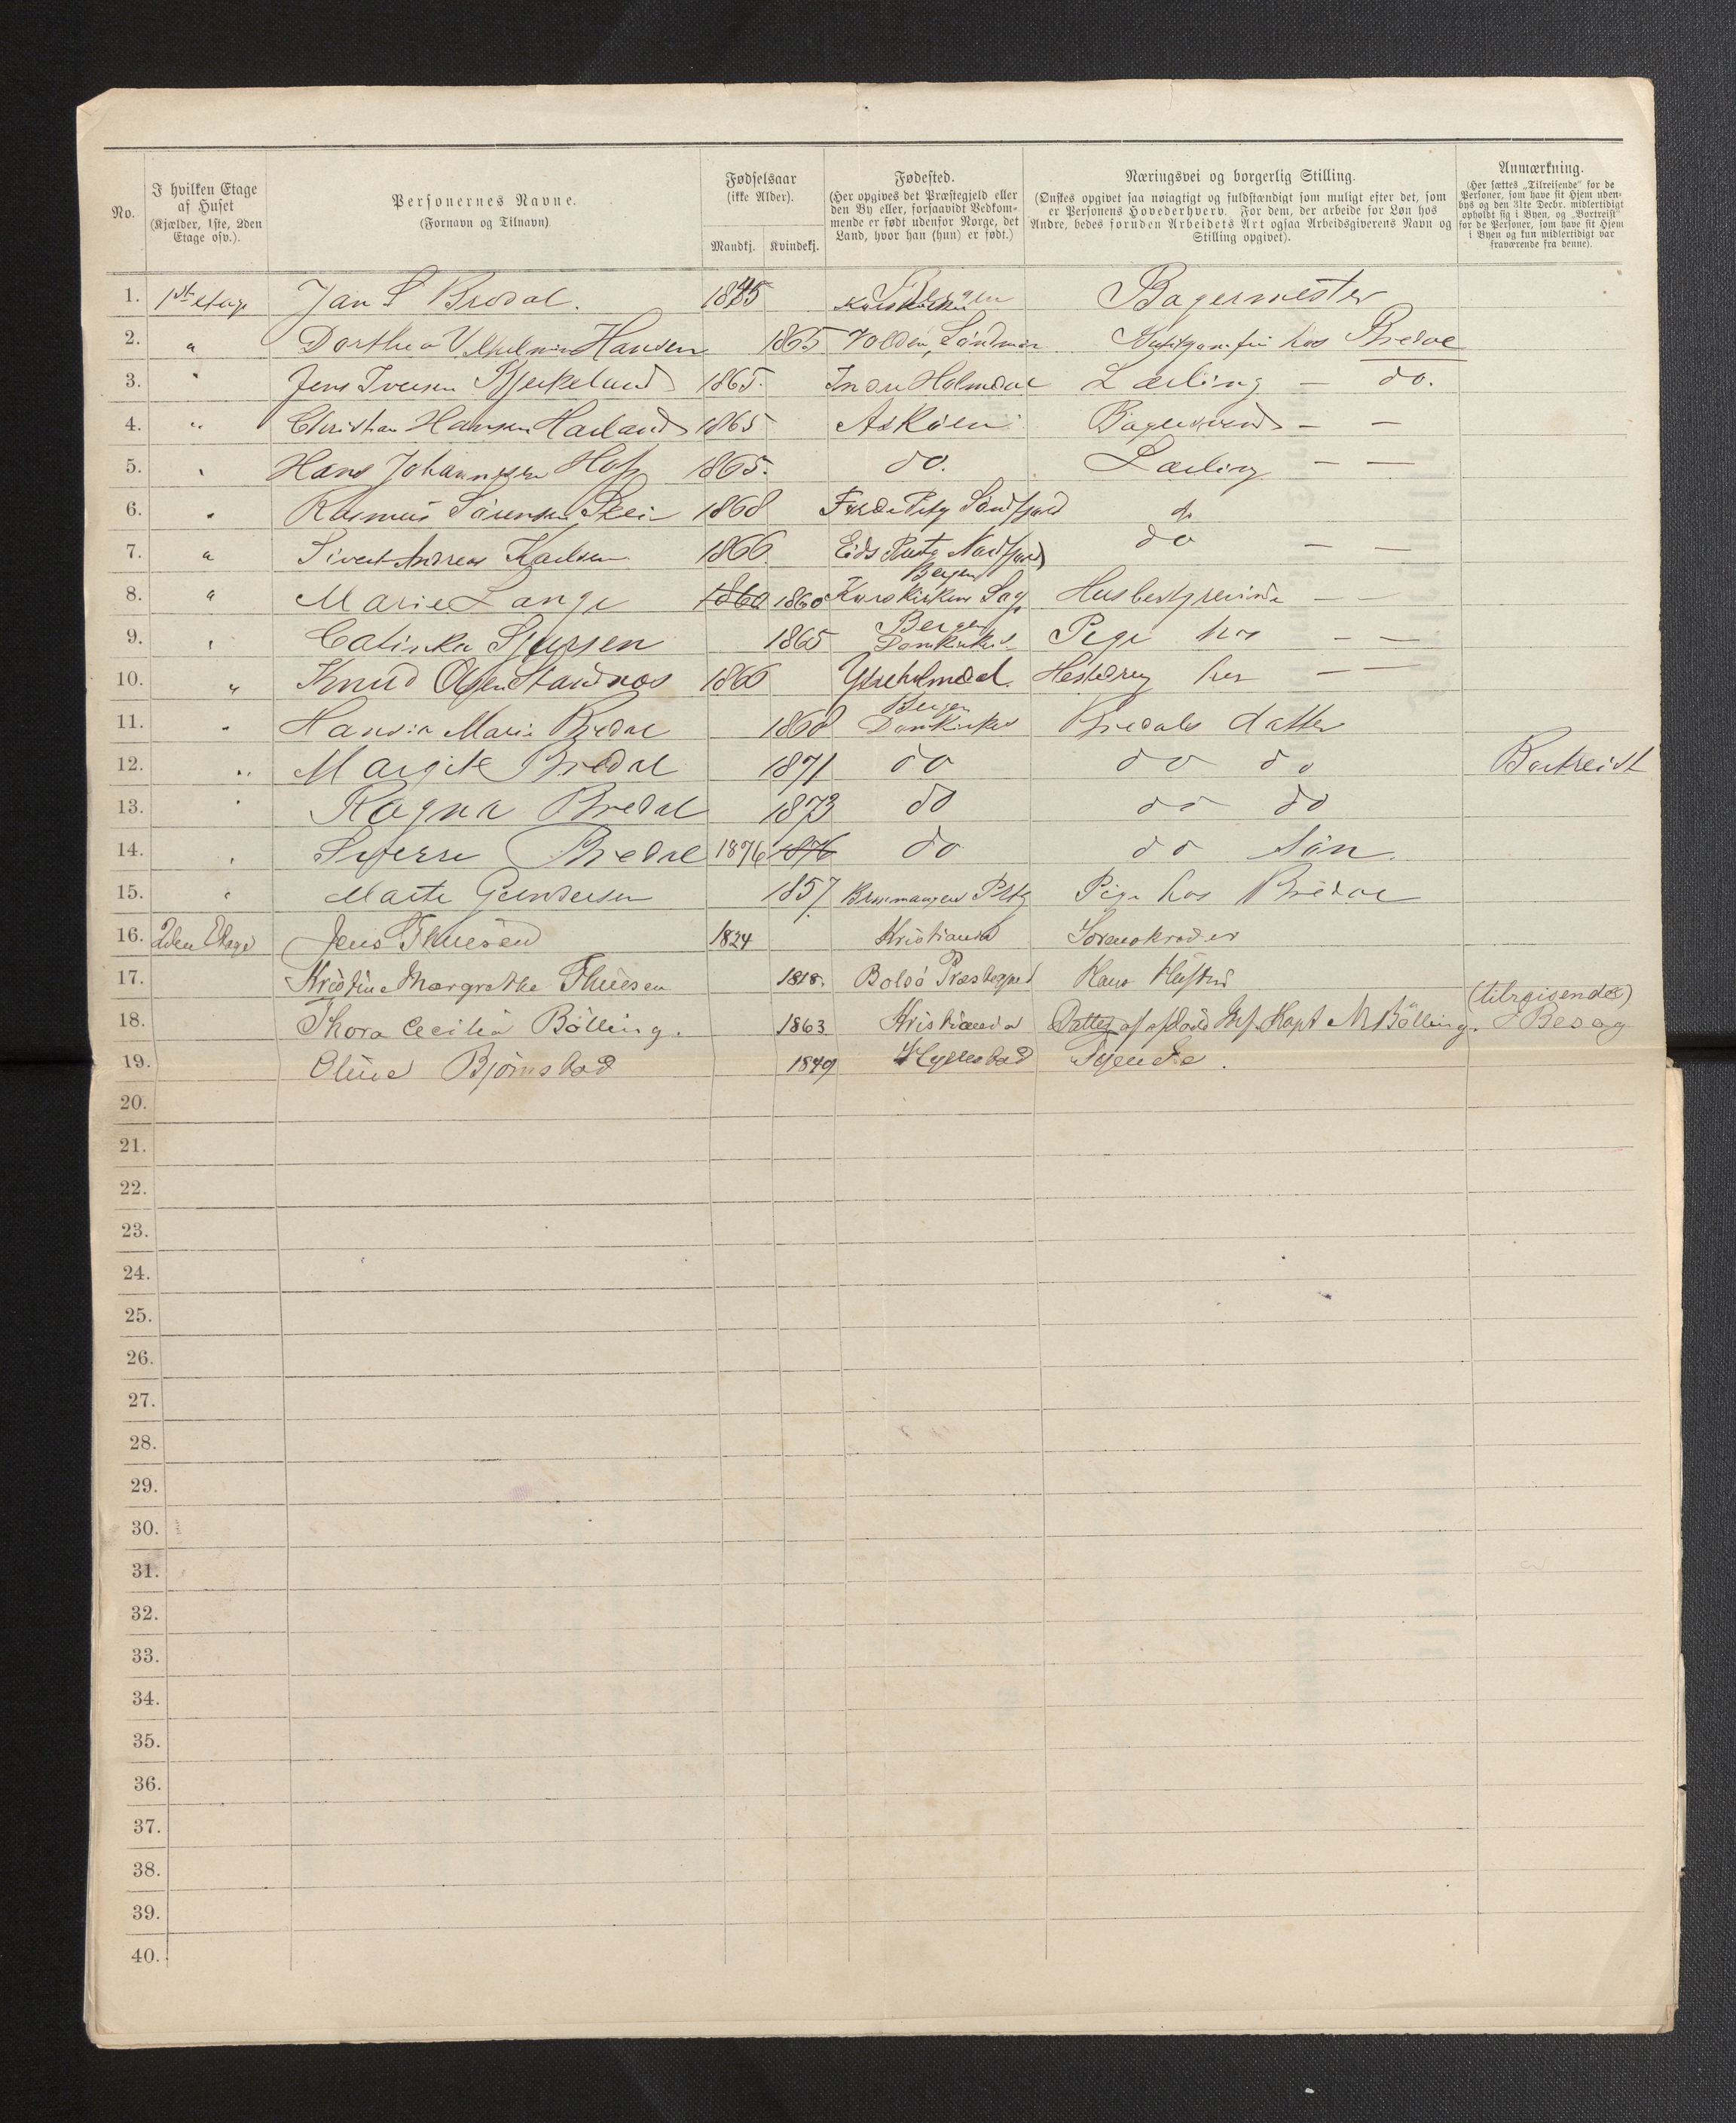 No.
I hvilken Etage af Huset (Kjælder, 1ste, 2den Etage osv.).
Personernes Navne. (Fornavn og Tilnavn)
Fødselsaar (ikke Alder).
Mandkj. Kvindekj.
Fødested. (Her opgives det Præstegjeld eller den By eller, forsaavidt Vedkommende er født udenfor Norge, det Land, hvor han (hun) er født.)
Næringsvei og borgerlig Stilling. (Ønskes opgivet saa nøiagtigt og fuldstændigt som muligt efter det, som er Personens Hovederhverv. For dem, der arbeide for Løn hos Andre, bedes foruden Arbeidets Art ogsaa Arbeidsgiverens Navn og Stilling opgivet).
Anmærkning. (Her sættes „Tilreisende" for de Personer, som have sit Hjem udenbys og den 31te Decbr. midlertidigt opholdt sig i Byen, og „Bortreist" for de Personer, som have sit Hjem i Byen og kun midlertidigt var fraværende fra denne).
1. 1st etage Jan S Bredal. 1845 Bergen Korskirken Bagermester
2. " Dorthea Vilhelmine Hansen 1865 Volden, Søndmør hos Bredal
3. " Jens Iversen Bjerkeland 1865. Indre Holmdal Lærling — do.
4. " Christian Hansen Hauland 1865 Askøen Bagersvend — —
5. " Hans Johannesen Hop 1865. do. Lærling — —
6. " Rasmus Sørensen Skei 1868 Førde Pstg Søndfjord do
7. " Sivert Andreas Karlsen 1866 Eids Pretg Nordfjord do — —
8. " Marie Lange 1860 1860 Bergen Korskirkens Sog Husbestyrerinde — —
9. " Catinka Sjursen 1865 Bergen Domkirkes Pige hos — —
10. " Knud Olsen Standnæs 1866 Ytreholmedal. Hestedreng hos — —
11. " Hansia Marie Bredal 1868 Bergen Domkirkes Bredals datter
12. " Margite Bredal 1871 do do do Bortreist
13. " Ragna Bredal 1873 do do do
14. " Sverre Bredal 1876 1876 do do Søn.
15. " Marte Gundersen 1857 Bremangers Pstg Pige hos Bredal
16. 2den Etage Jens Thuesen 1824 Kristiania Sorenskriver
17. Kristine Margrethe Thuesen 1818. Bolsø Præstegjeld Hans Hustru
18. Thora Cecilia Bölling. 1863 Kristiania Datter af afdöde Inf. Kapt M Bölling. (tilreisende) i Besøg
19. Oline Bjørnstad 1849 Hyllestad Tjeneste.
20.
21.
22.
23.
24.
25.
26.
27.
28.
29.
30.
31.
32.
33.
34.
35.
36.
37.
38.
39.
40.